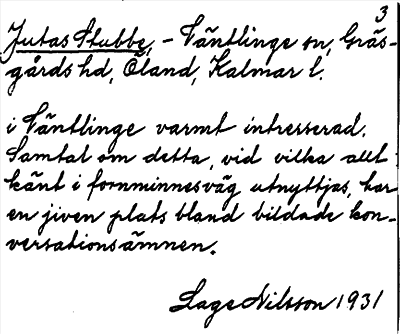 3
Jutas Stubbe, - Väntlinge sn, Gräs-
gårds hd, Öland, Kalmar l.
i Väntlinge varmt intresserad.
Samtal om detta, vid vilka allt
känt i fornminnesväg utnyttjas, har
en jiven plats bland bildade kon-
versationsämnen.
Lage Nilsson 1931